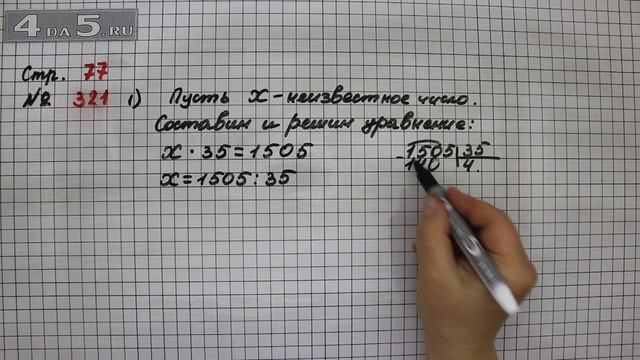 4 DA 5.RU
Стр. 77
№ 321 1) Пусть x - неизвестное число.
Составим и решим уравнение:
x · 35 = 1505
x = 1505 : 35
- 1505 | 35
140 | 4.